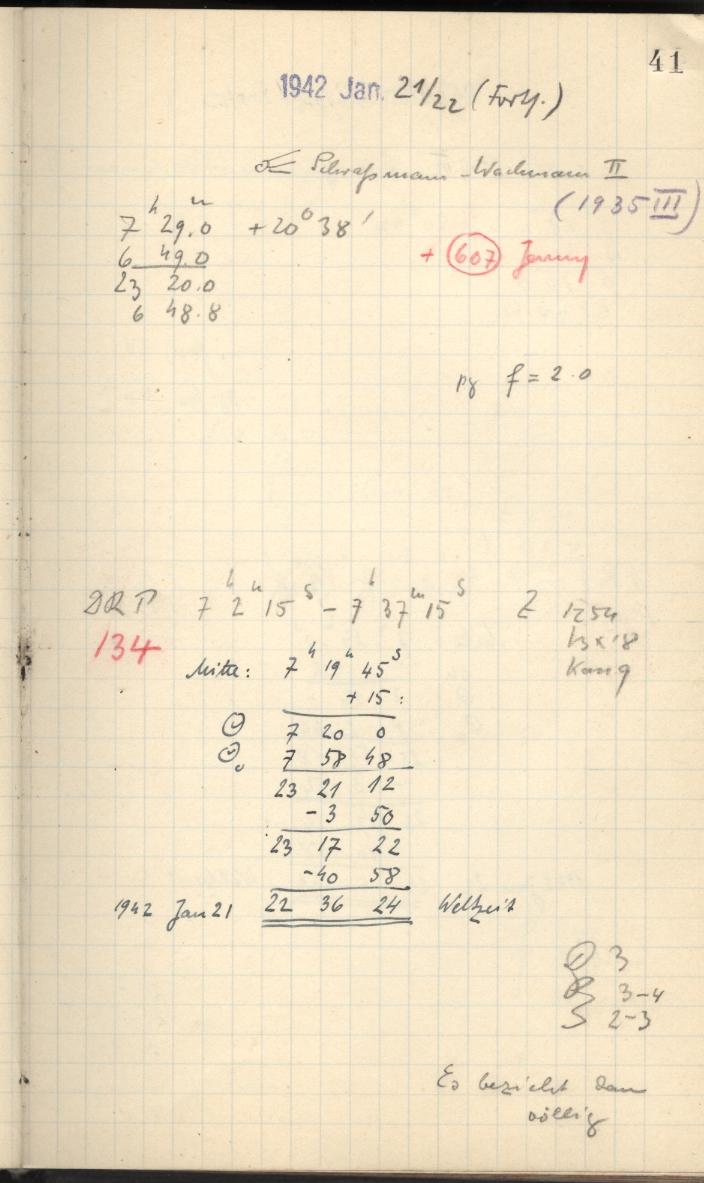 41
1942 Jan. 21/22 (Forts.)
☄ Schwaßmann-Wachmann II
(1935 III)
7ʰ 29.0ᵐ +20° 38′
6 49.0
+ 607 Jenny
23 20.0
6 48.8
pg f = 2.0
DRP 7ʰ 2ᵐ 15ˢ – 7ʰ 37ᵐ 15ˢ Z 1254
134
13 x 18
Mitte: 7ʰ 19ᵐ 45ˢ
+ 15:
7 20 0
7 58 48
23 21 12
-3 50
23 17 22
-40 58
1942 Jan 21 22 36 24 Weltzeit
D 3
R 3-4
S 2-3
Es bezieht dann
völlig